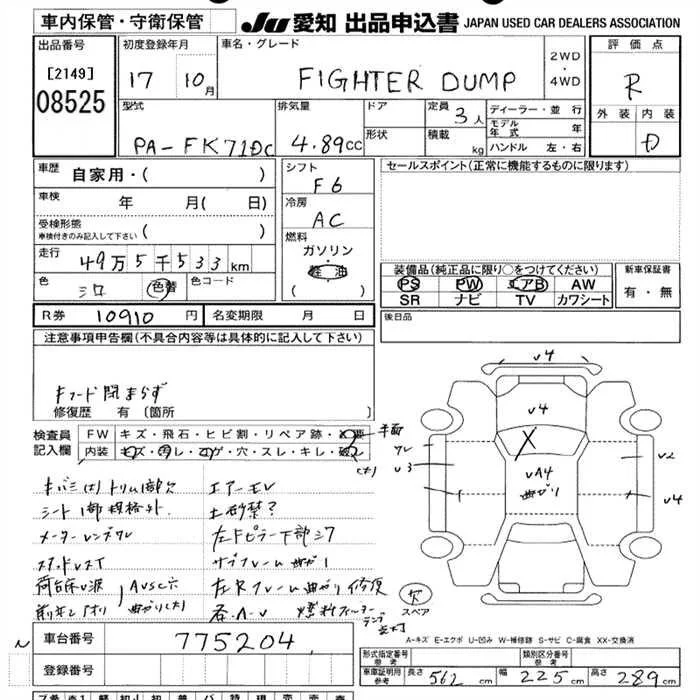 車内保管・守衛保管
JU 愛知 出品申込書 JAPAN USED CAR DEALERS ASSOCIATION
出品番号
[2149]
08525
初度登録年月
17 10月
車名・グレード
FIGHTER DUMP
2WD
・
4WD
評価点
R
外装 内装
D
型式
PA-FK71DC
排気量
4.89cc
ドア
形状
定員
3人
積載
kg
ディーラー・並行
モデル年式 年
ハンドル 左・右
車歴
自家用・( )
車検
年 月( 日)
受検形態
車検付きのみ記入して下さい ( )
走行
49万5千533km
色
シロ
色替
色コード
シフト
F6
冷房
AC
燃料
ガソリン
軽油
( )
セールスポイント(正常に機能するものに限ります)
装備品(純正品に限り○をつけてください)
PS PW エアB AW
SR ナビ TV カワシート
新車保証書
有・無
R券 10910円
名変期限 月 日
後日品
注意事項申告欄(不具合内容等は具体的に記入して下さい)
キフード閉まらず
修復歴 有〔箇所 〕
検査員
記入欄
FW キズ・飛石・ヒビ割・リペア跡・X要
内装 キズ・汚レ・コゲ・穴・スレ・キレ・破レ
(大)
v4
v4
X
vA4
曲がり
v3
v2
v4
トリム1部欠
シート1部規格外
メーターレンズワレ
エアーモレ
土砂禁?
左Fピラー下部
サブフレーム曲がり
左Rフレーム曲がり修復
曲がり(大)
欠
スペア
A-キズ E-エクボ U-凹み W-補修跡 S-サビ C-腐食 XX-交換済
車台番号
775204
登録番号
形式指定番号
参考
類別区分番号
参考
車庫証明用
参考
長さ 562cm
幅 225cm
高さ 289cm